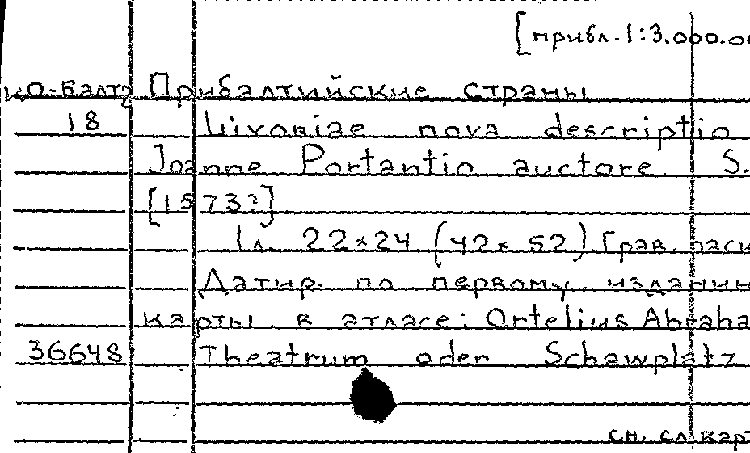 [прибл. 1:3.000.00
ио-Балт Прибалтийские страны
18 Livoniae nova descriptio
Joanne Portantio auctore. S.
[1573?]
1 л. 22×24 (42×52) Грав. раск
Датир. по первому издани
карты в атласе: Ortelius Abraha
36648 Theatrum oder Schawplatz
см. сл. кар